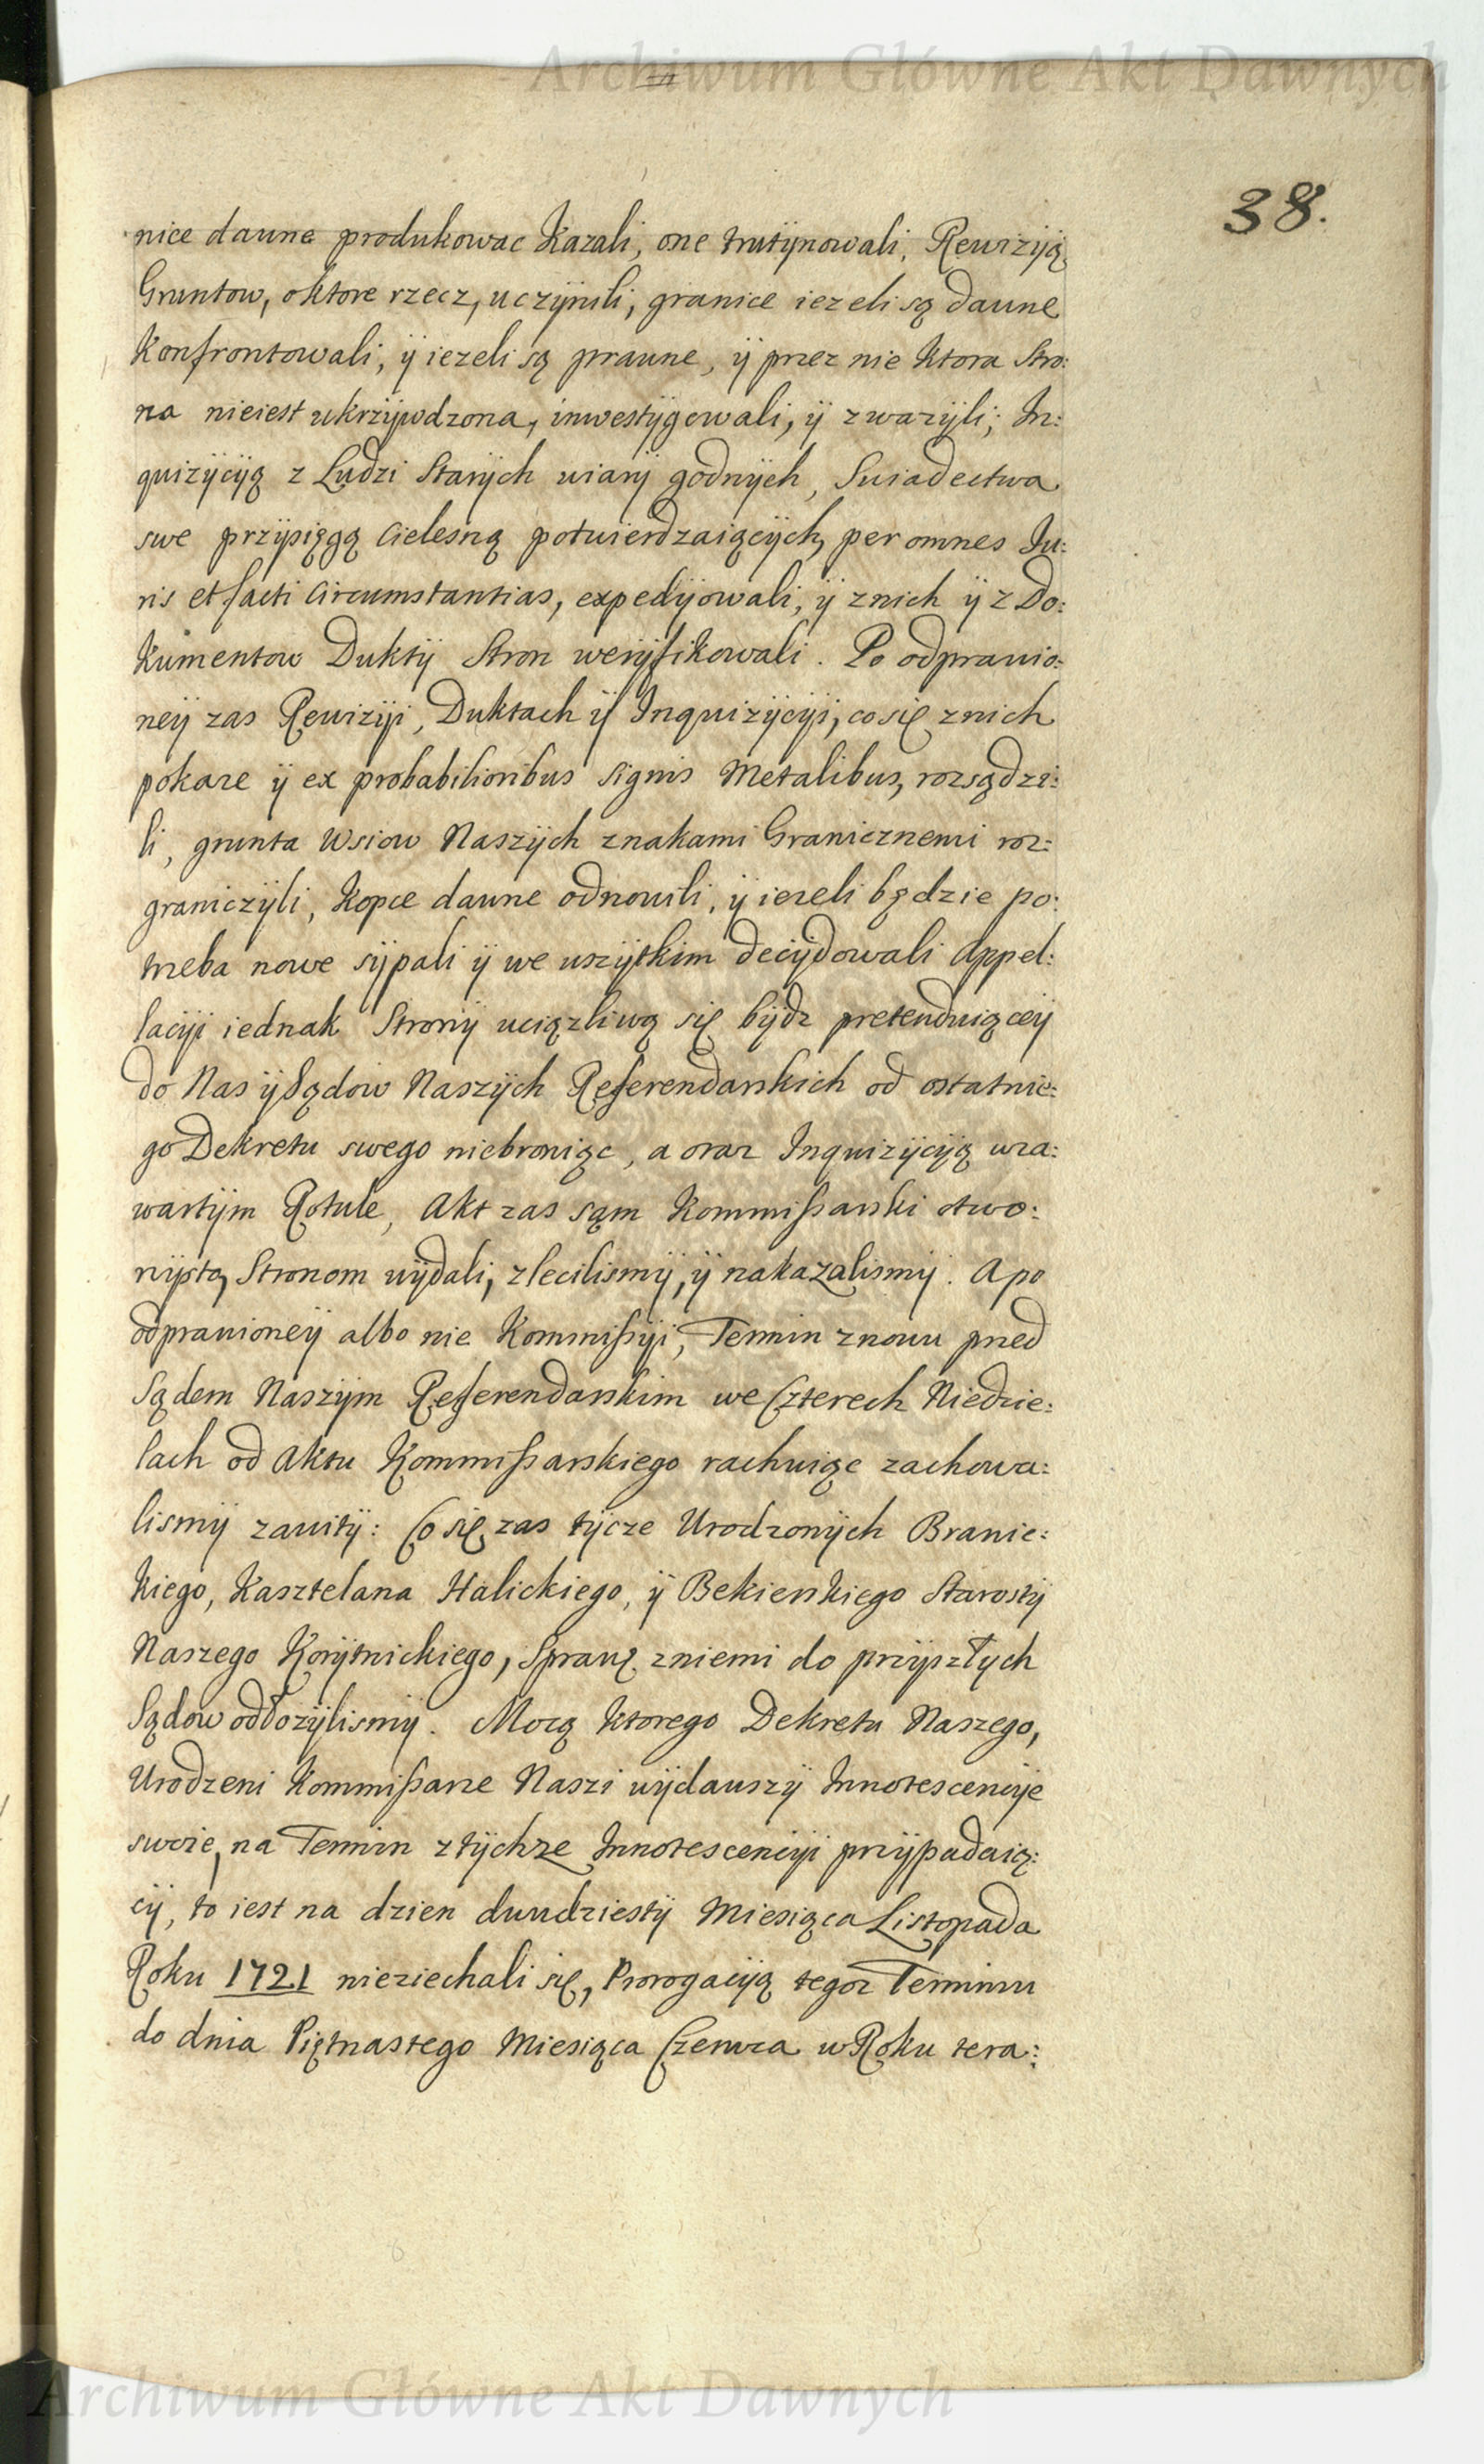 Archiwum Główne Akt Dawnych
38.
nice dawne produkowac Kazali, one trutÿnowali, Rewizÿią
Gruntow, oktore rzecz, uczÿnili, granice iezeli są dawne
Konfrontowali, ÿ iezeli są prawne, ÿ przez nie Ktora Stro:
na nieiest ukrzÿwdzona, inwestÿgowali, ÿ zwazÿli; In:
quizÿcÿą z Ludzi Starÿch wiarÿ godnÿch, Swiadectwa
swe przÿsięgą Cielesną potwierdzaiącÿch, per omnes Ju:
ris et facti Circumstantias, expedÿowali, ÿ znich ÿ z Do:
Kumentow Duktÿ Stron werÿfikowali. Po odprawio:
neÿ zas Rewizÿi, Duktach ÿ Inquizÿcÿi, cosię znich
pokaze ÿ ex probabilioribus signis Metalibus, rozsądzi:
li, grunta Wsiow Naszÿch znakami Granicznemi roz:
graniczÿli, Kopce dawne odnowili, ÿ iezeli będzie po:
trzeba nowe sÿpali ÿ we wszÿtkim decÿdowali Appel:
lacÿi iednak Stronÿ uciązliwą się bÿdz pretenduiąceÿ
do Nas ÿ Sądow Naszÿch Referendarskich od ostatnie:
go Dekretu swego niebroniąc, a oraz Inquizÿcÿą wza:
wartÿm Rotule, Akt zas sąm Kommissarski otwo:
rzÿstą Stronom wÿdali, zlecilismÿ, ÿ nakazalismÿ. Apo
odprawioneÿ albo nie Kommissÿi, Termin znowu przed
Sądem Naszÿm Referendarskim we Czterech Niedzie:
lach od Aktu Kommissarskiego rachuiąc zachowa:
lismÿ zawitÿ: Co się zas tÿcze Urodzonÿch Branic:
Kiego, Kasztelana Halickiego, ÿ Bekierskiego Starostÿ
Naszego Korÿtnickiego, Sprawę zniemi do przÿszłÿch
Sądow odłozÿlismÿ. Mocą Ktorego Dekretu Naszego,
Urodzeni Kommissarze Naszi wÿdawszÿ Innotescencÿe
swoie, na Termin ztÿchze Innotescencÿi przÿpadaią:
cÿ, to iest na dzien dwudziestÿ Miesiąca Listopada
Roku 1721 nieziechali się, Prorogacÿą tegoz Terminu
do dnia Piętnastego Miesiąca Czerwca w Roku tera:
Archiwum Główne Akt Dawnych